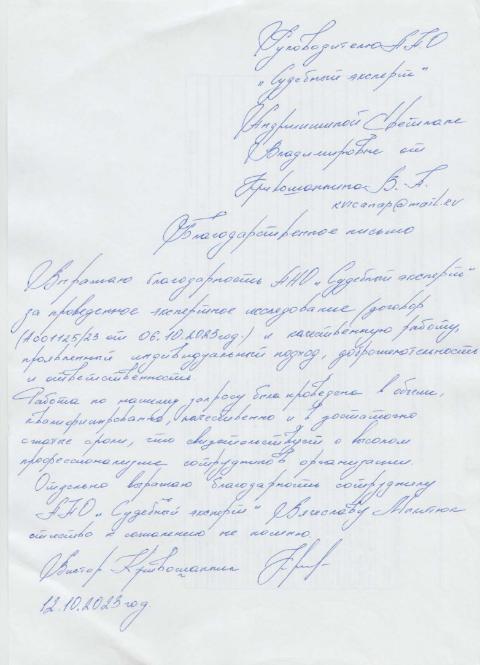 Руководителю АНО
„Судебный эксперт"
Андрюшиной Светлане
Владимировне от
Кривошапкина В. А.
kvicanap@mail.ru
Благодарственное письмо
Выражаю благодарность АНО „Судебный эксперт"
за проведенное экспертное исследование (договор
от 06.10.2023год.) и качественную работу,
проявленный индивидуальный подход, доброжелательность
и ответственность
Работа по нашему запросу была проведена в объеме,
квалифицированно, качественно и в достаточно
сжатые сроки, что свидетельствует о высоком
профессионализме сотрудников организации.
Отдельно выражаю благодарность сотруднику
АНО „Судебный эксперт" Вячеславу
отчество к сожалению не помню.
Виктор Кривошапкин
12.10.2023год.